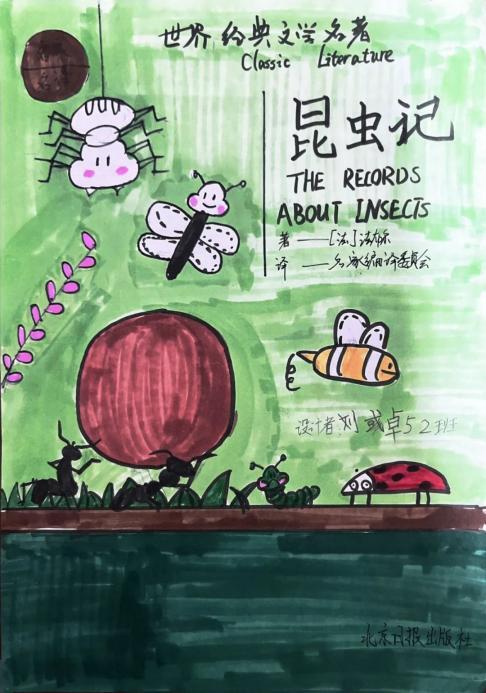 世界经典文学名著
Classic Literature
昆虫记
THE RECORDS
ABOUT INSECTS
著——[法]法布尔
译——名家编译委员会
设计者刘彧卓52班
北京日报出版社